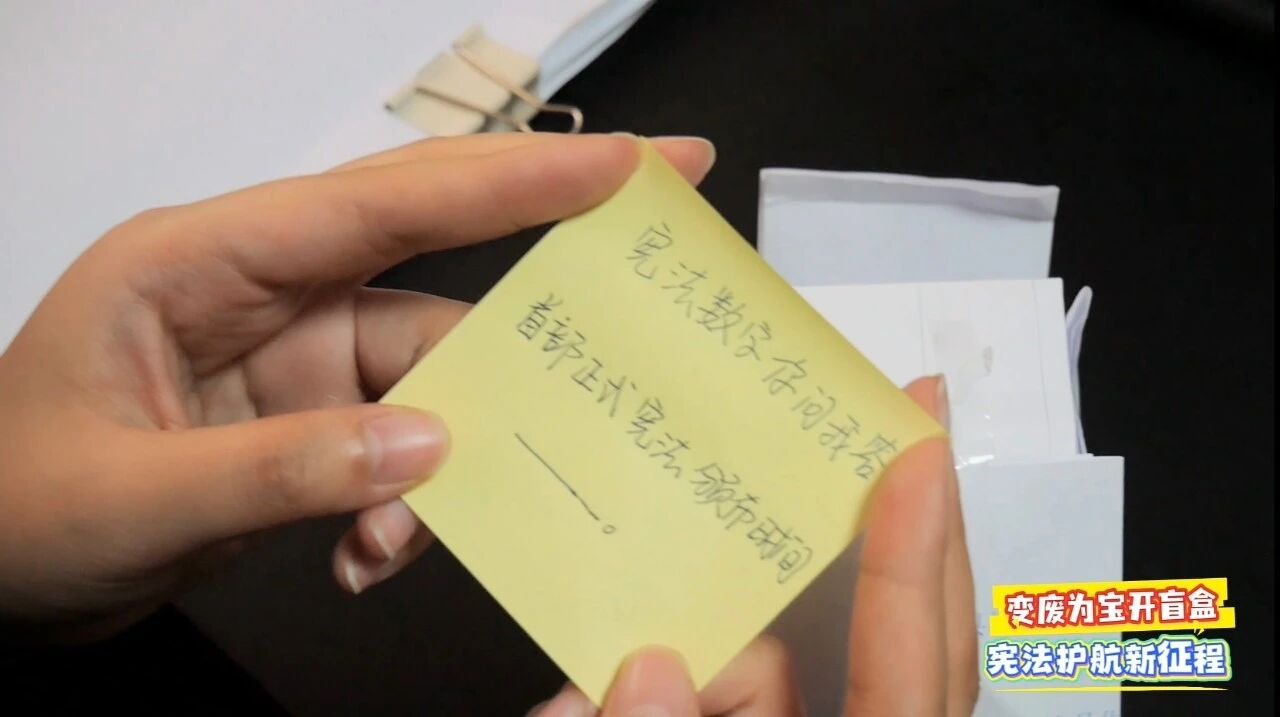 宪法数字你问我答
首部正式宪法颁布时间
——。
变废为宝开盲盒
宪法护航新征程